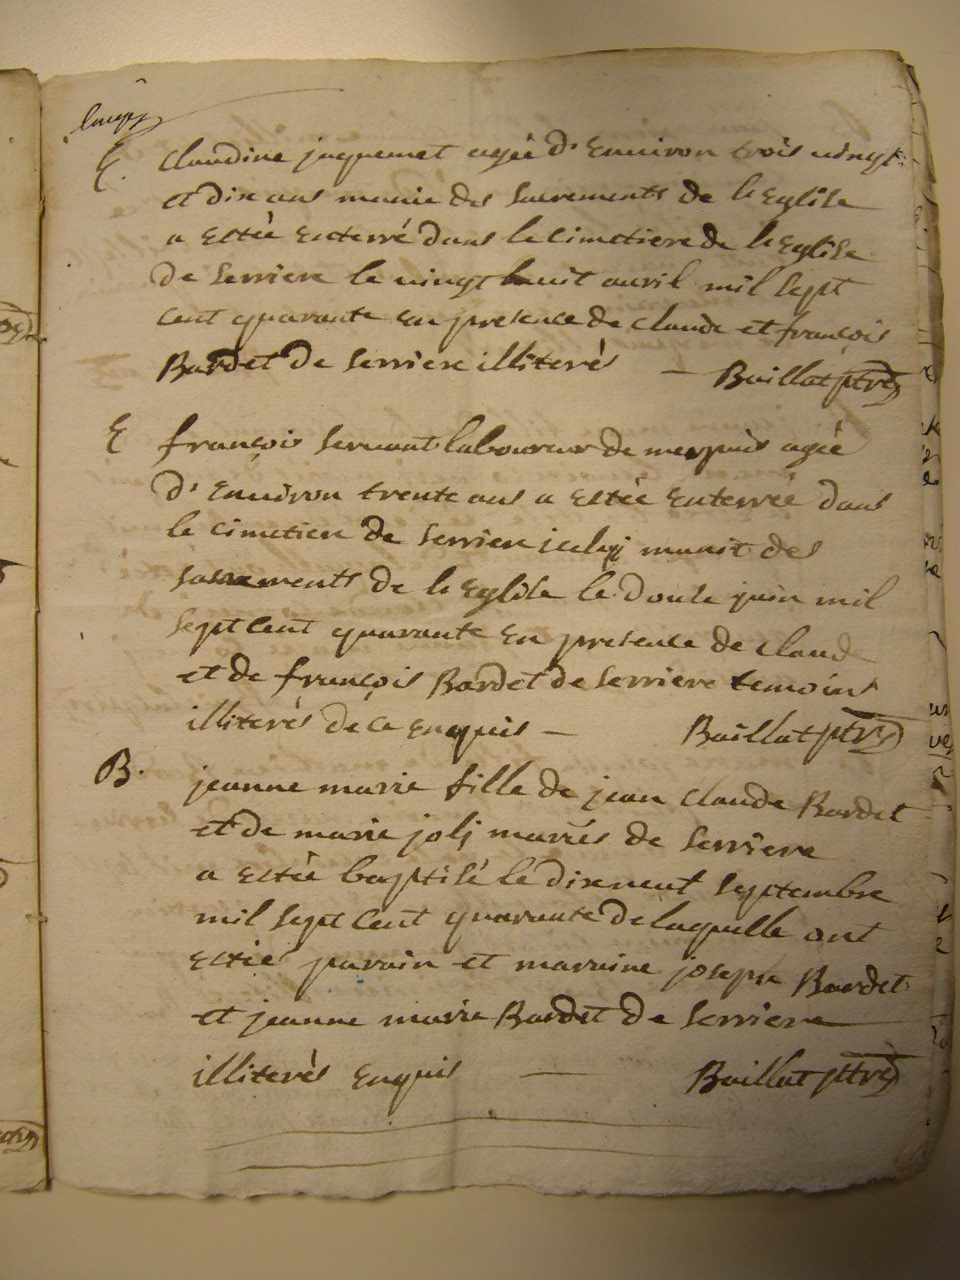 E. claudine jaquemet agée d'Environ trois vingt
et dix ans munie des sacrements de l'Eglise
a Estée Enterré dans le cimetiere de l'Eglise
de serriere le vingt huit avril mil sept
cent quarante En presence de claude et françois
Bardet de serriere illiterés — Baillat ptre
E françois servant laboureur de agée
d'Environ trente ans a Estée Enterrée dans
le cimetiere de serriere iceluj munit des
sacrements de l'Eglise le douse juin mil
sept cent quarante En presence de claude
et de françois Bardet de serriere temoins
illiterés de ce Enquis — Baillat ptre
B. jeanne marie fille de jean claude Bardet
et de marie joli mariés de serriere
a Estée baptisé le dixneuf septembre
mil sept cent quarante de laquelle ont
Estés parain et maraine joseph Bardet
et jeanne marie Bardet de serriere
illiterés Enquis — Baillat ptre